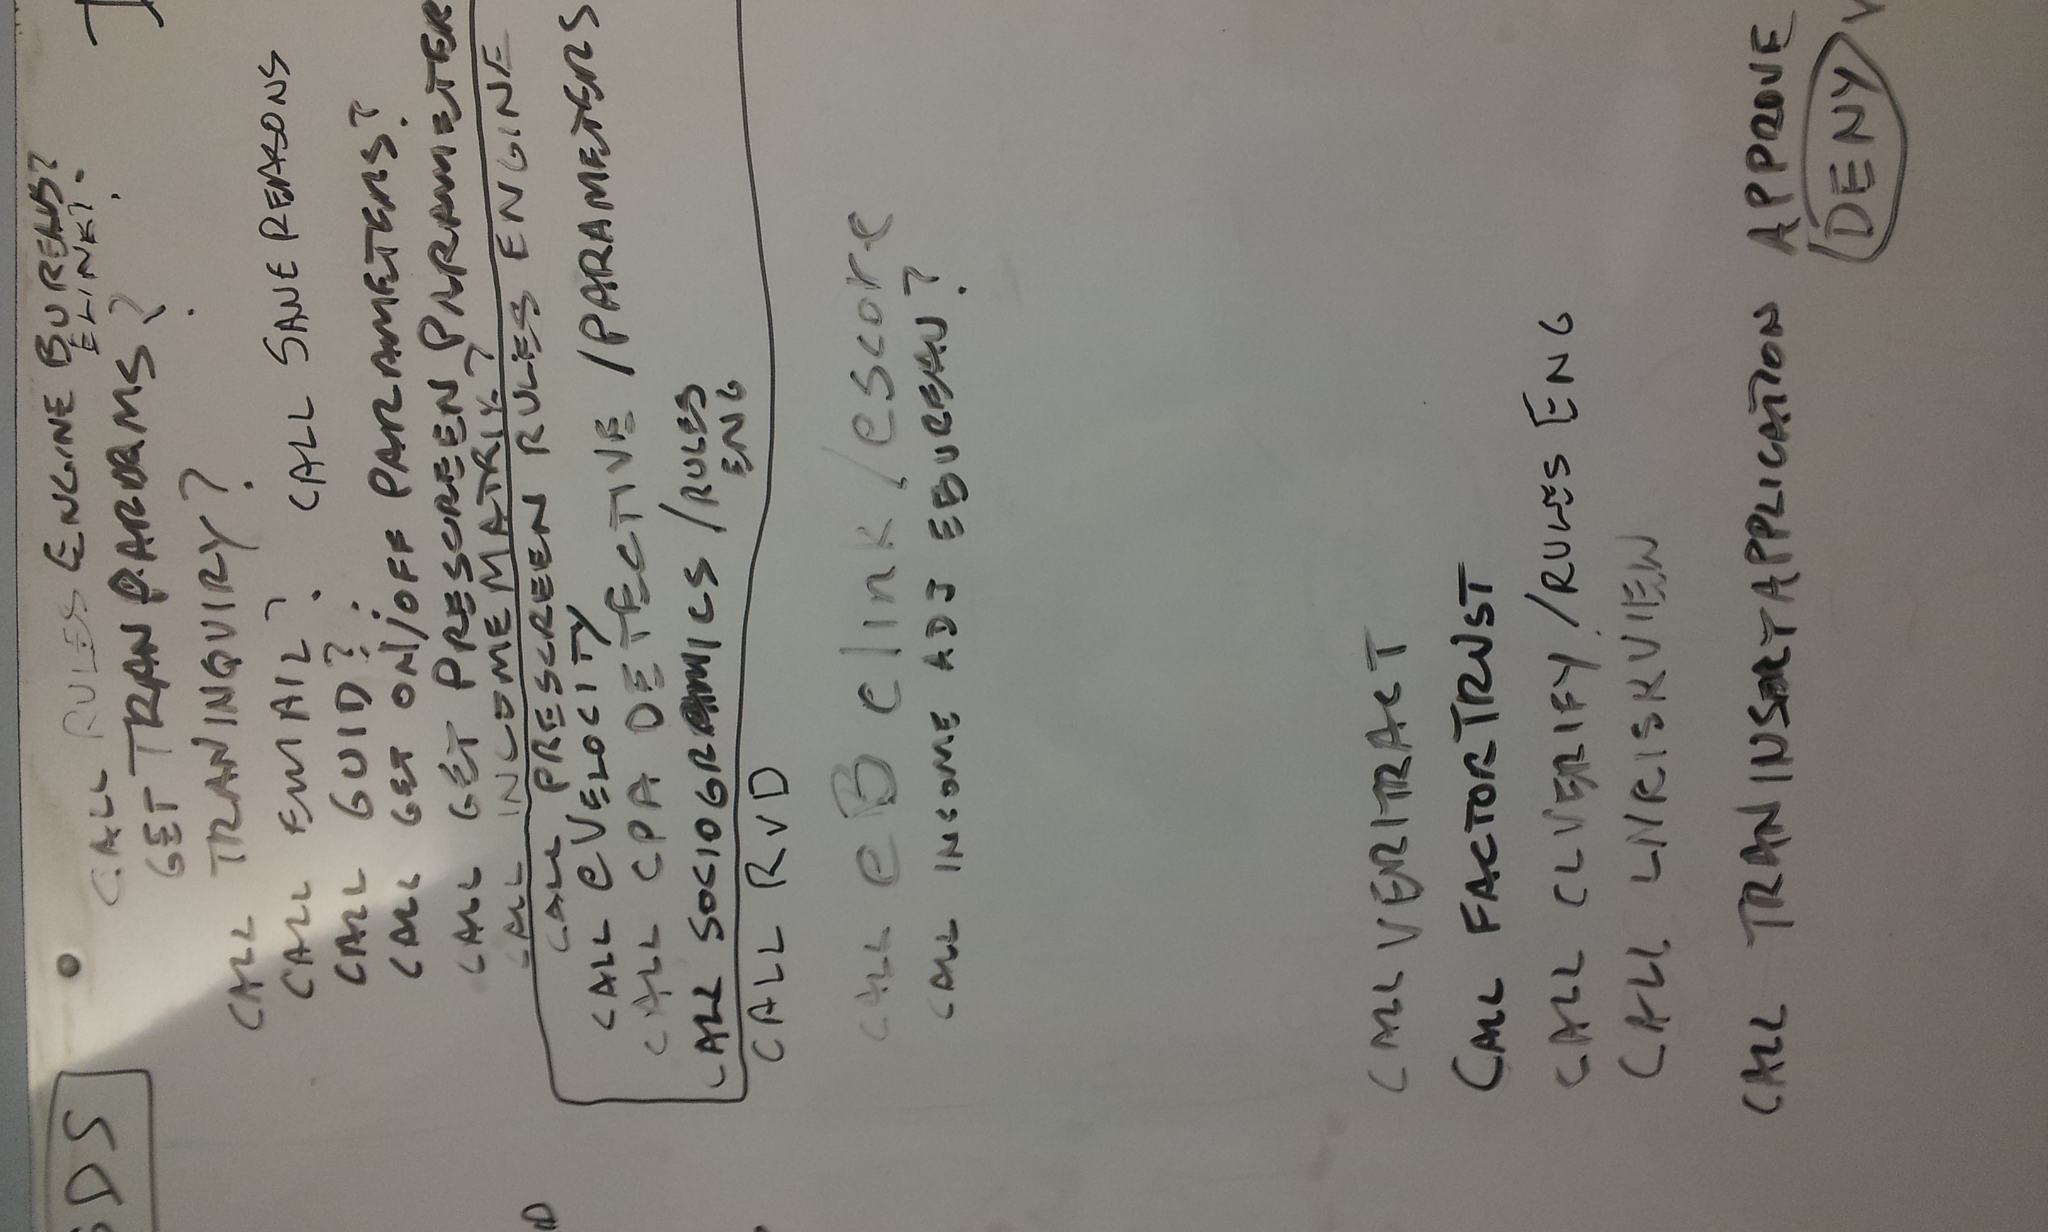 DS
CALL RULES ENGINE BUREAUS?
ELINK?
GET TRAN PARAMS?
CALL TRANINQUIRY?
CALL EMAIL?
CALL SAVE REASONS
CALL GUID?
CALL GET ON/OFF PARAMETERS?
CALL GET PRESCREEN PARAMETER
CALL INCOME MATRIX?
CALL PRESCREEN RULES ENGINE
CALL eVELOCITY
CALL CPA DETECTIVE /PARAMETERS
CALL SOCIOGRAMICS /RULES
ENG
CALL RVD
CALL eB elink/escore
CALL INSOME ADJ EBUREAU?
CALL VERITRACT
CALL FACTORTRUST
CALL CLVERIFY/RULES ENG
CALL LNRISKVIEW
CALL TRANINSERTAPPLICATION APPROVE
DENY